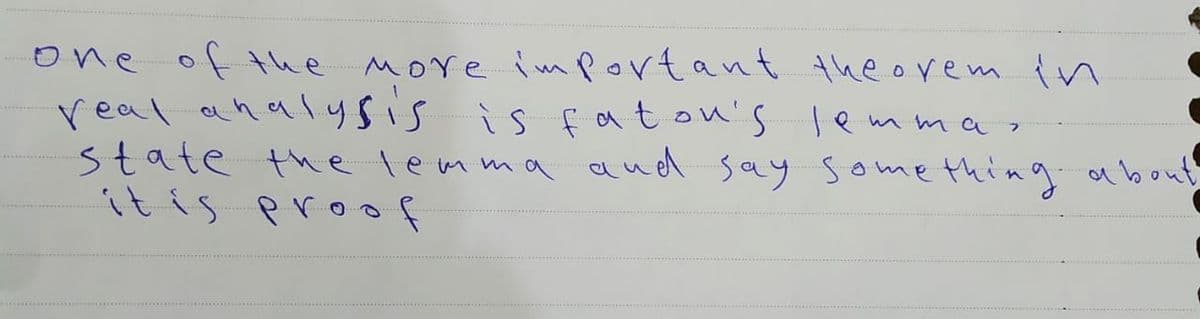 one of the more important theorem in
real analysis is fatou's lemma,
state the lemma and say something about
it is proof